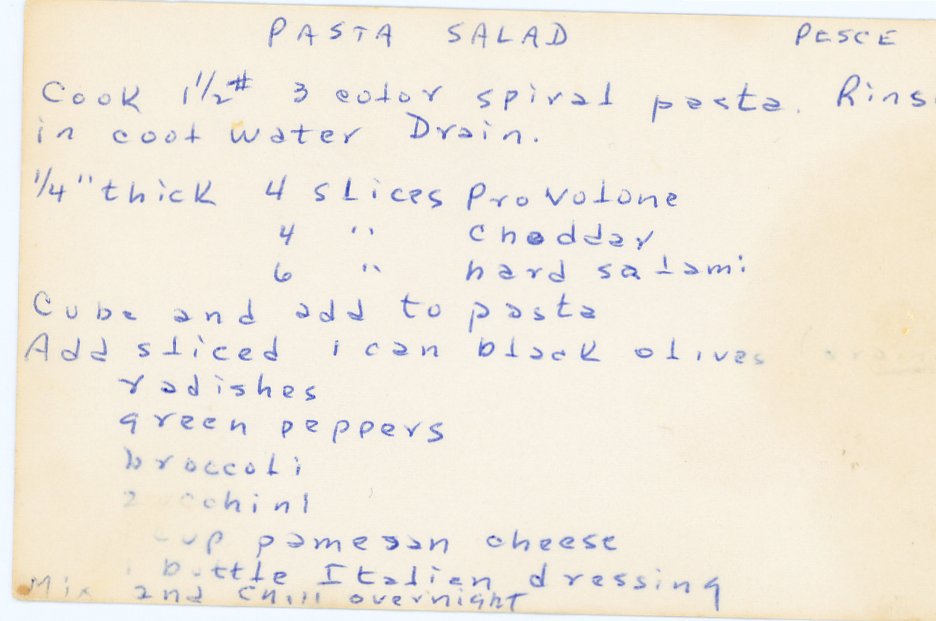 PASTA SALAD PESCE
Cook 1½# 3 color spiral pasta. Rins
in cool water Drain.
¼" thick 4 slices Provolone
4 " Cheddar
6 " hard salami
Cube and add to pasta
Add sliced 1 can black olives
radishes
green peppers
broccoli
zucchini
cup pamesan cheese
bottle Italian dressing
Mix and chill overnight